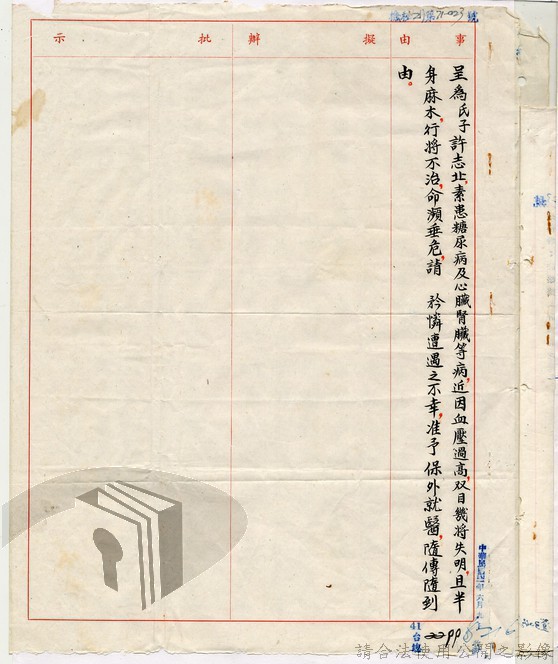 號
事由
擬辦
批示
呈為氏子許志北,素患糖尿病及心臟腎臟等病,近因血壓過高,双目幾將失明,且半
身麻木,行將不治,命瀕垂危,請 矜憐遭遇之不幸,准予保外就醫,隨傳隨到
由。
41
台總
請合法使用公開之影像